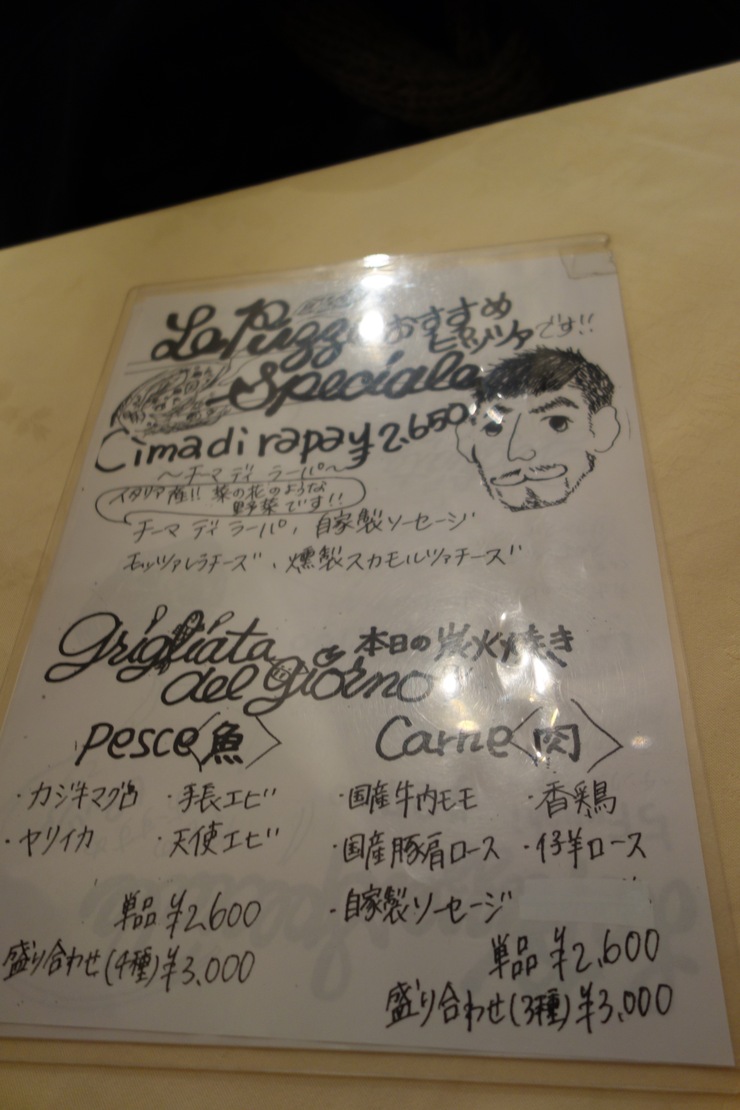 La Pizza おすすめ
ピッツァです!!
Speciale
Cima di rapa ¥2,650
〜チーマ ディ ラーパ〜
イタリア産!! 菜の花のような
野菜です!!
チーマ ディ ラーパ、自家製ソーセージ
モッツァレラチーズ、燻製スカモルツァチーズ
grigliata 本日の炭火焼き
del giorno
Pesce〈魚〉
・カジキマグロ ・手長エビ
・ヤリイカ ・天使エビ
単品 ¥2,600
盛り合わせ(4種)¥3,000
Carne〈肉〉
・国産牛内モモ ・香鶏
・国産豚肩ロース ・仔羊ロース
・自家製ソーセージ
単品 ¥2,600
盛り合わせ(3種)¥3,000